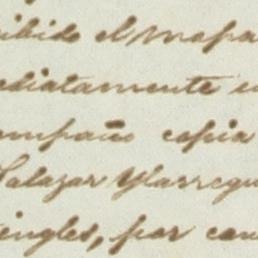 ibido el mapa
ediatamente e
ompaño copia
Salazar Ylarregu
ingles, por con